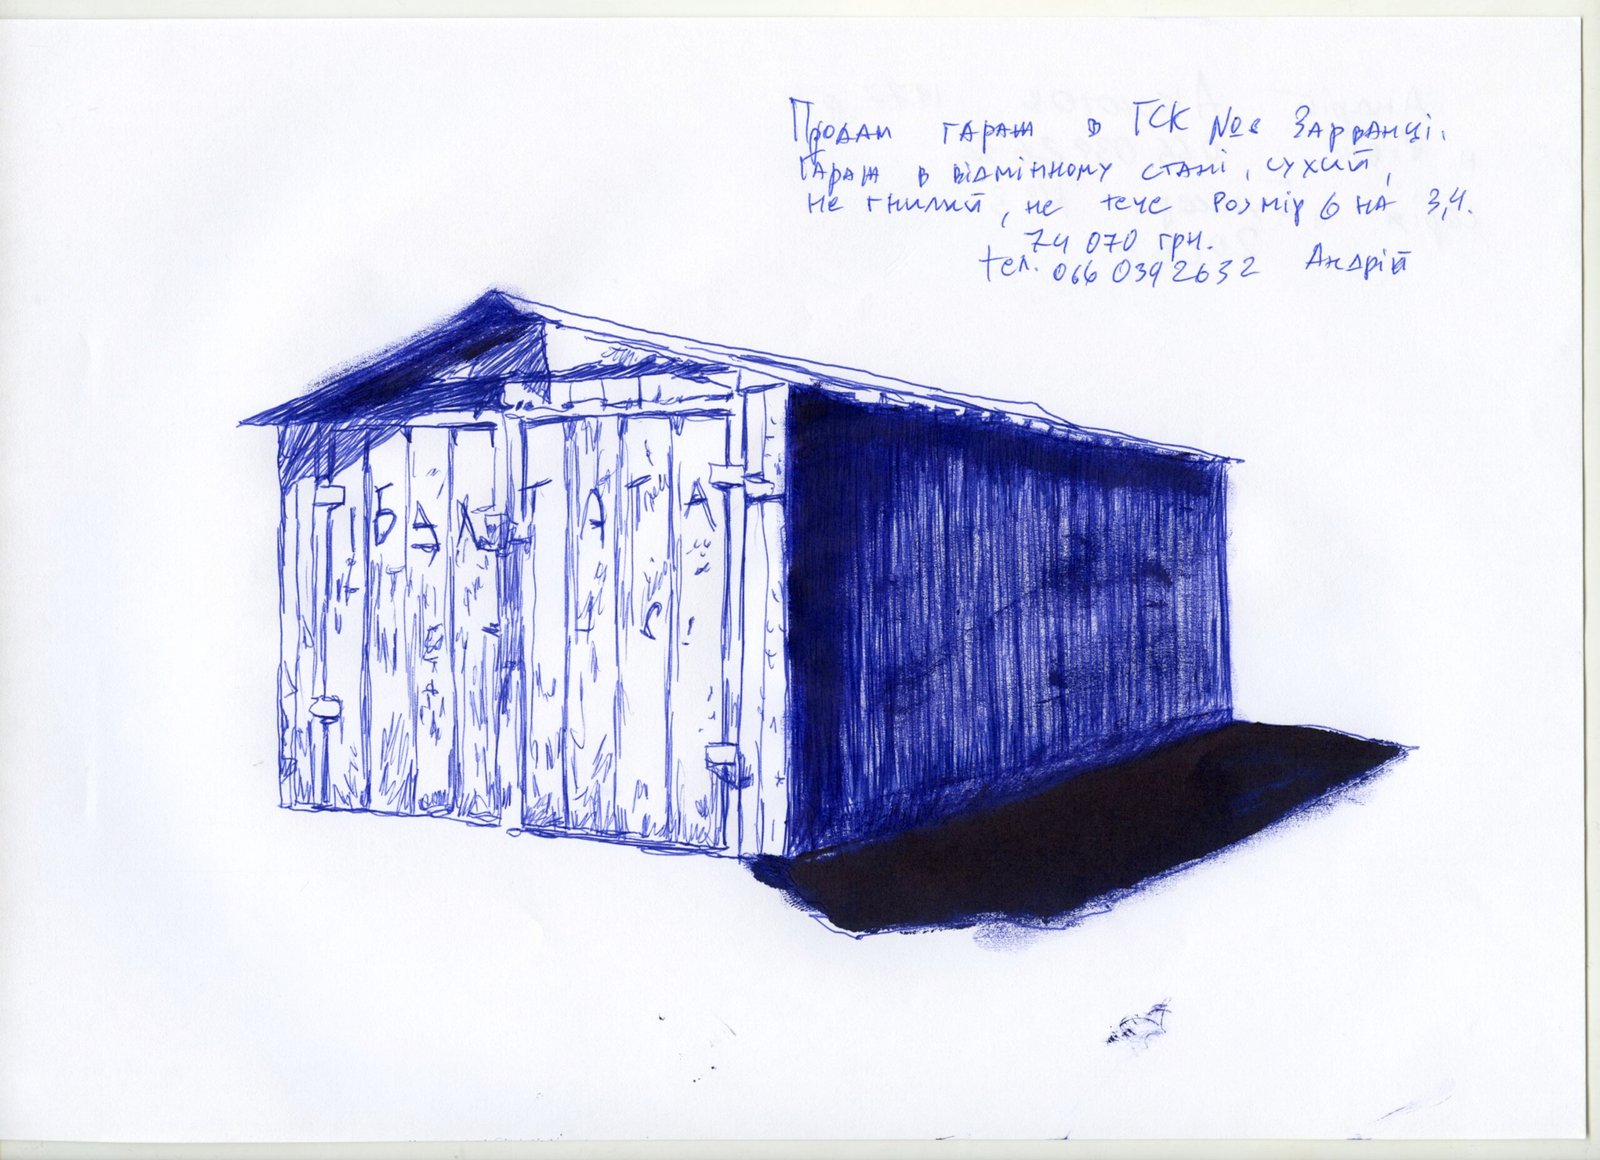 Продам гараж в ГСК №6 Зарванці.
Гараж в відмінному стані, сухий,
не гнилий, не тече Розмір 6 на 3,4.
74 070 грн.
тел. 066 039 2632 Андрій